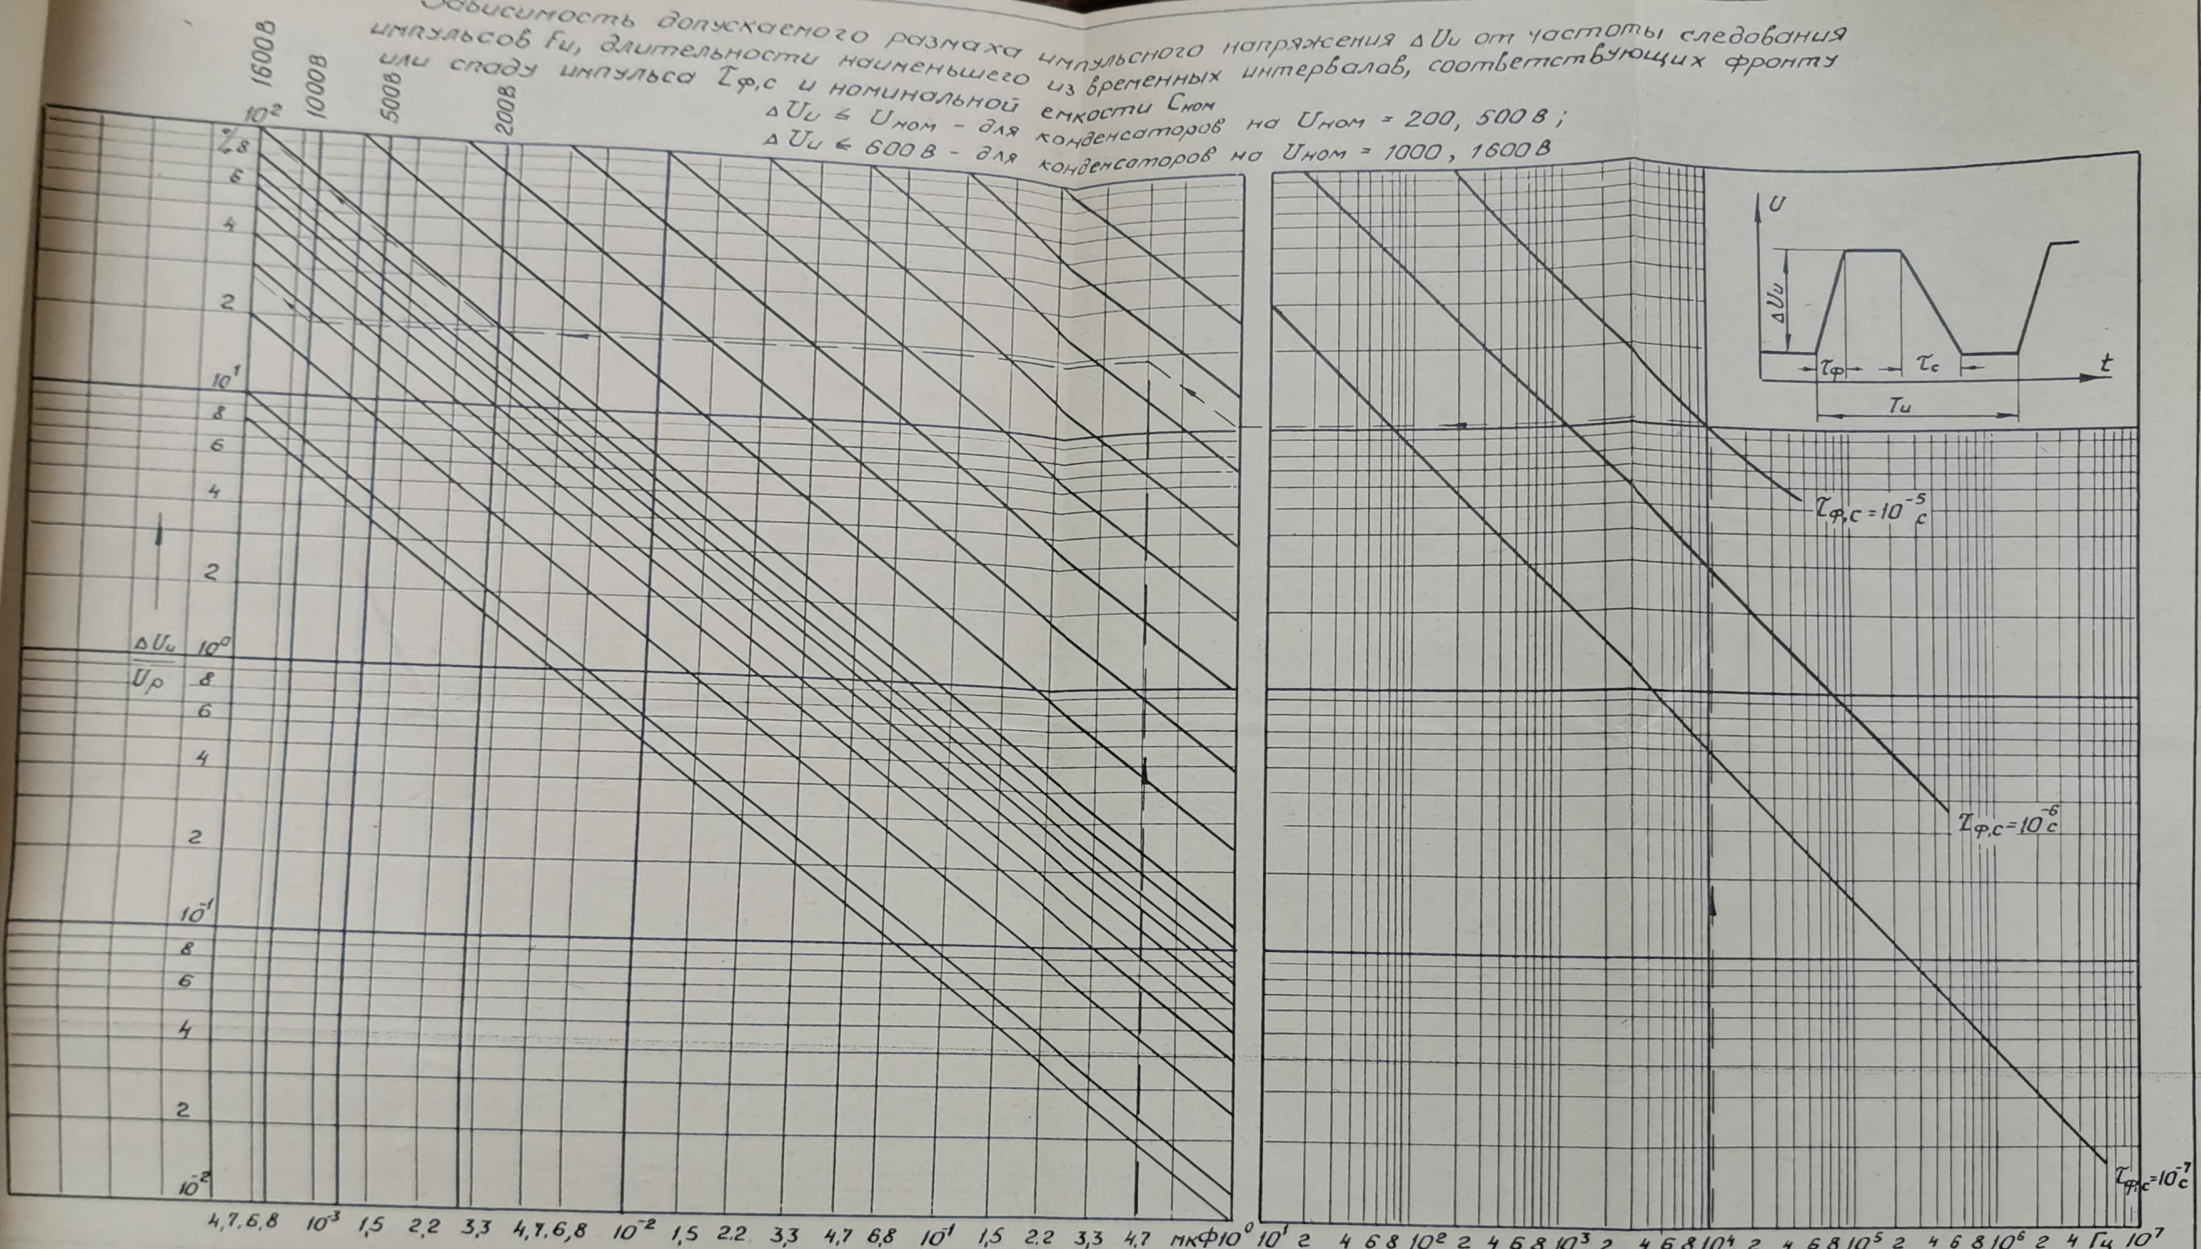 Зависимость допускаемого размаха импульсного напряжения ΔUи от частоты следования
импульсов Fи, длительности наименьшего из временных интервалов, соответствующих фронту
или спаду импульса τф,с и номинальной емкости Сном
ΔUи ≤ Uном - для конденсаторов на Uном = 200, 500 В;
ΔUи ≤ 600 В - для конденсаторов на Uном = 1000, 1600 В
1600В
1000В
500В
200В
10²
%
8
6
4
2
10¹
8
6
4
2
ΔUи
Uр
10⁰
8
6
4
2
10⁻¹
8
6
4
2
10⁻²
4,7 6,8 10⁻³ 1,5 2,2 3,3 4,7 6,8 10⁻² 1,5 2.2 3.3 4,7 6,8 10⁻¹ 1,5 2.2 3,3 4,7 мкФ 10⁰
U
ΔUи
τф
τс
t
Tи
τф,с=10⁻⁵ с
τф,с=10⁻⁶ с
τф,с=10⁻⁷ с
10¹ 2 4 6 8 10² 2 4 6 8 10³ 2 4 6 8 10⁴ 2 4 6 8 10⁵ 2 4 6 8 10⁶ 2 4 Гц 10⁷